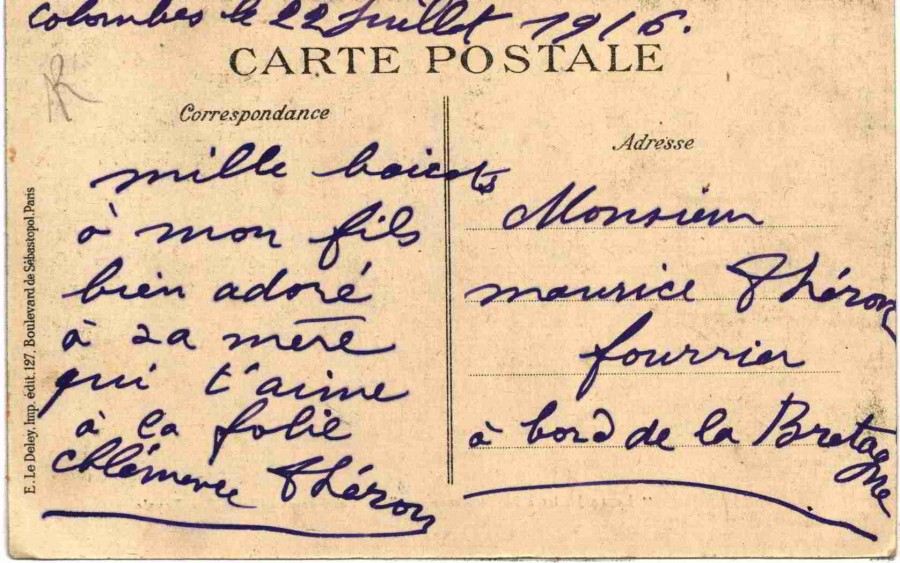 colombes le 22 Juillet 1916.
CARTE POSTALE
Correspondance
mille baisots
à mon fils
bien adoré
à sa mère
qui t'aime
à la folie
Chlémence Théron
Adresse
Monsieur
maurice Théron
fourrier
à bord de la Bretagne
E. Le Deley, Imp. édit. 127, Boulevard de Sébastopol, Paris